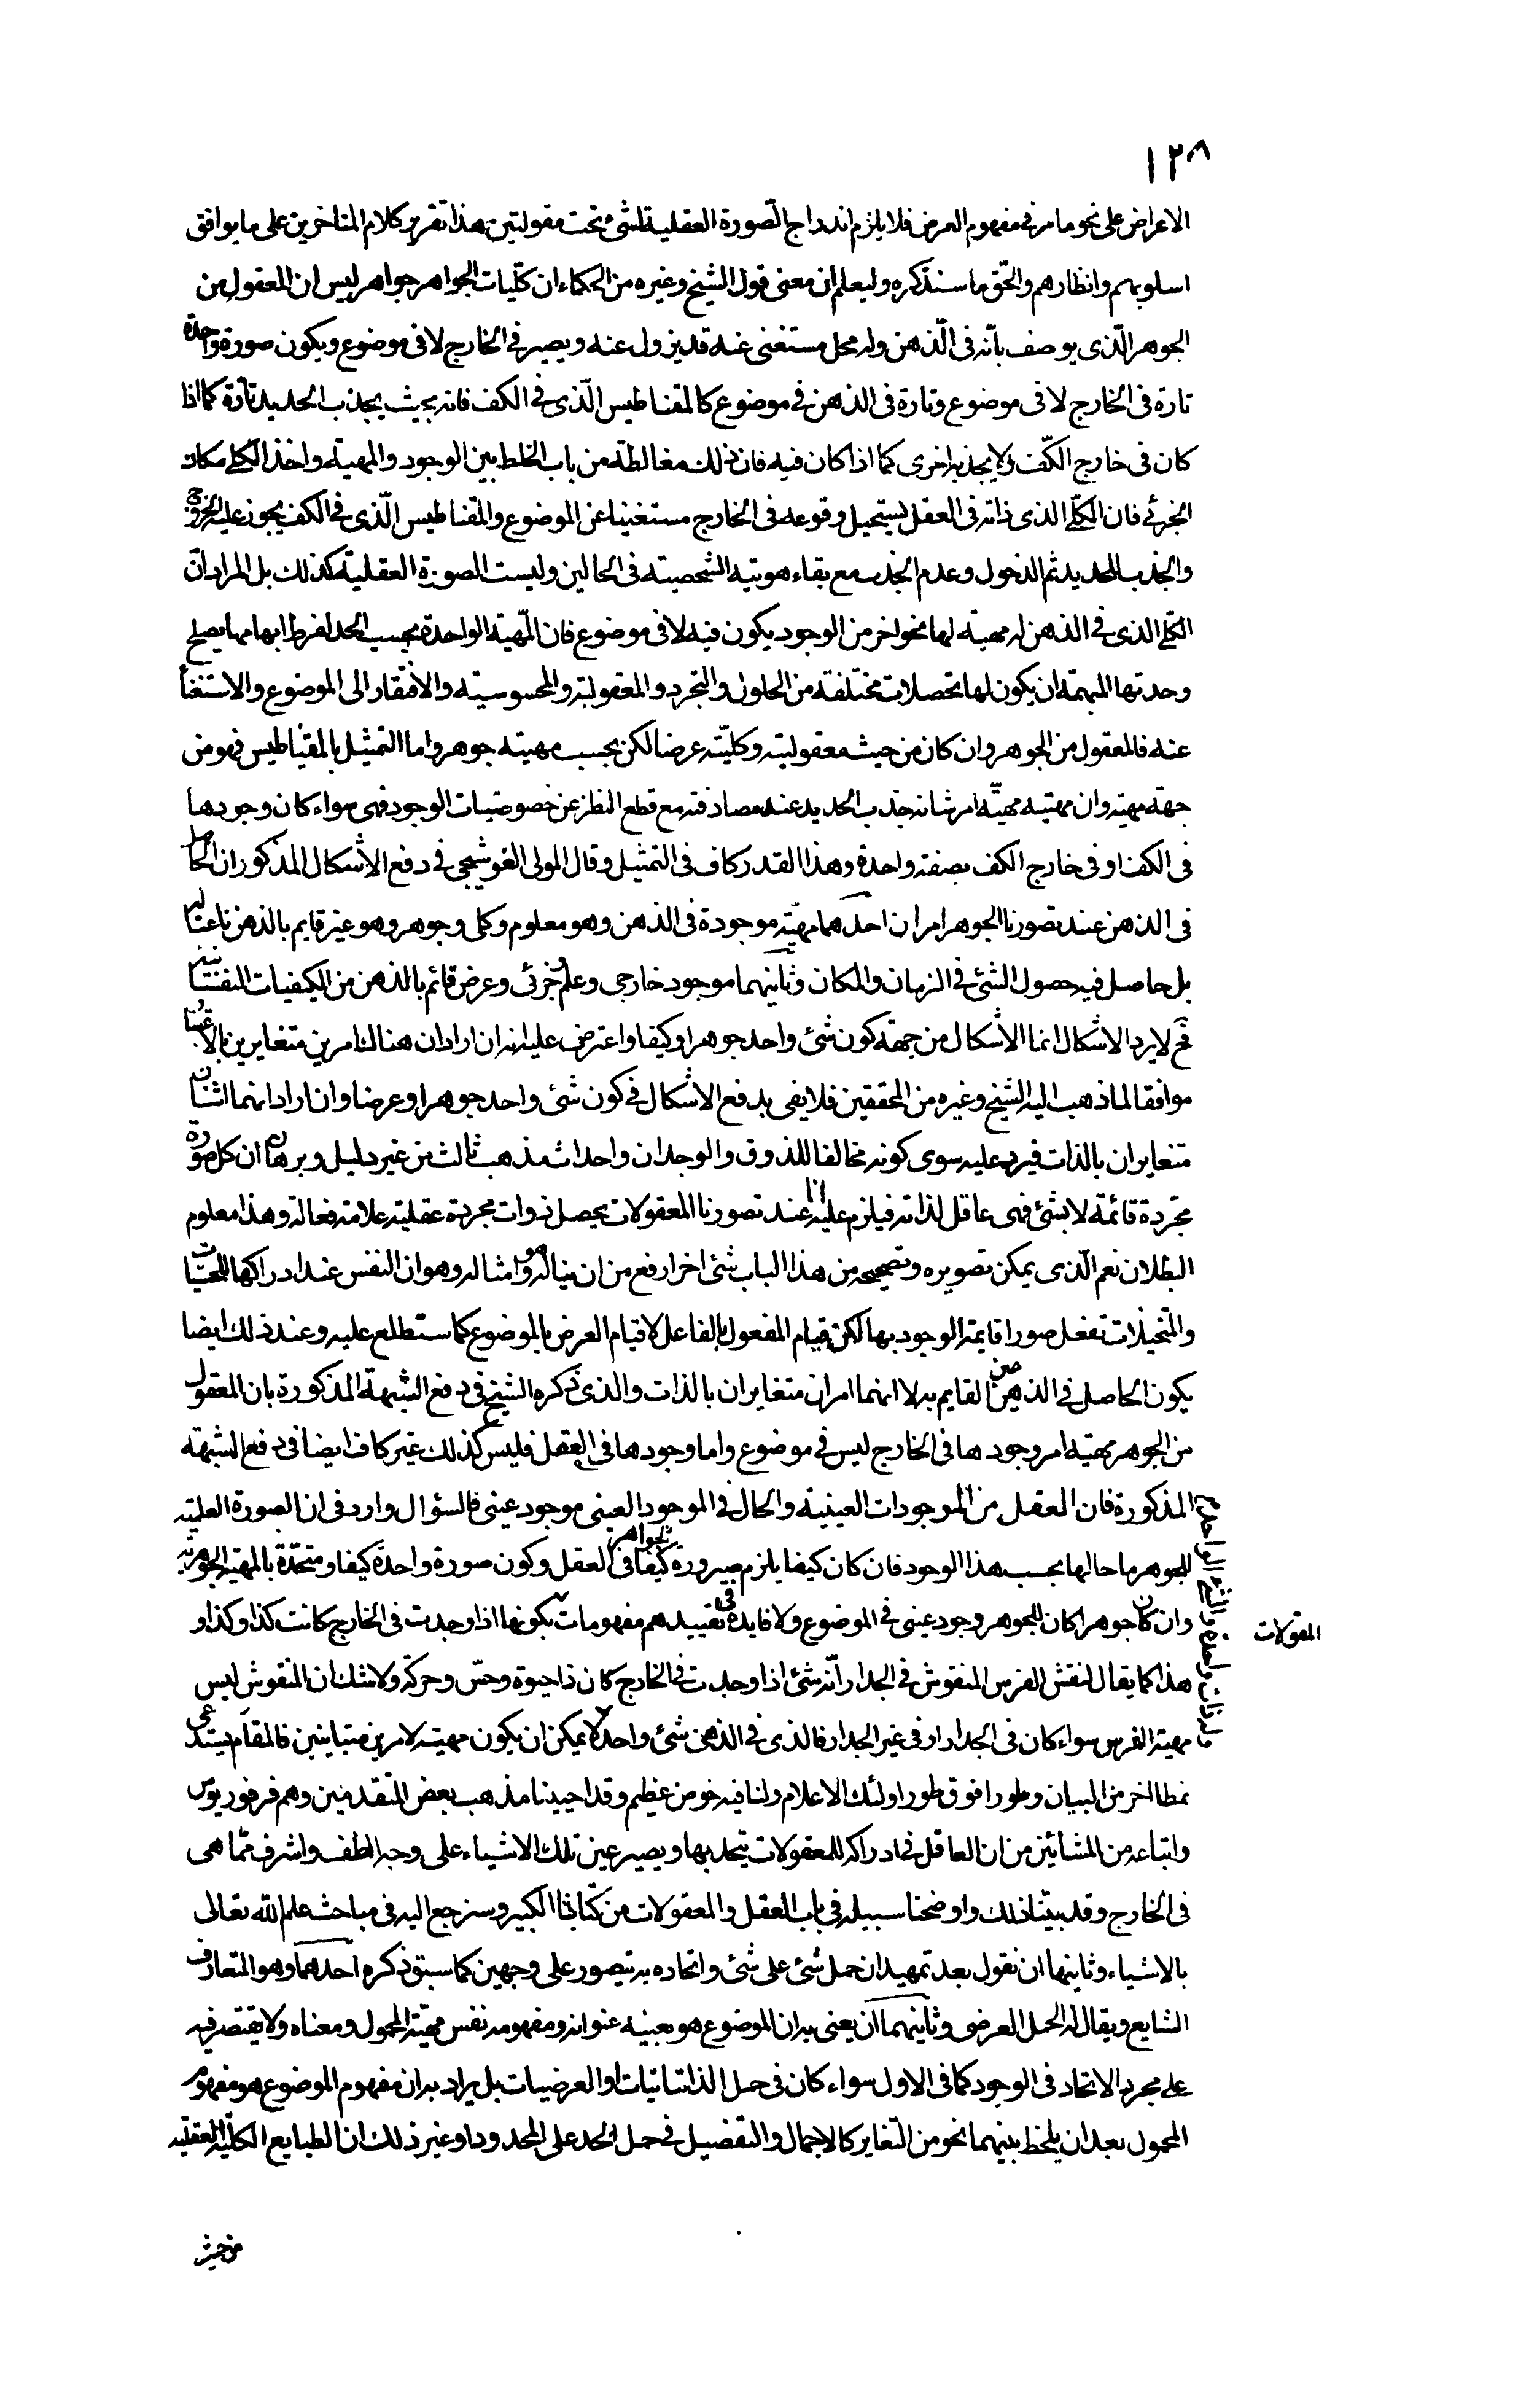 ١٢٨
الاعراض على نحو ما مر فى مفهوم العرض فلا يلزم اندراج الصّورة العقلية لشئ تحت مقولتين هذا تقرير كلام المتاخرين على ما يوافق
اسلوبهم وانظارهم والحّق ما سنذكره وليعلم ان معنى قول الشيخ وغيره من الحكماء ان كلّيات الجواهر جواهر ليس ان المعقول من
الجوهر الّذى يوصف بانّه فى الّذهن وله محل مستغنى عنه قد يزول عنه ويصير فى الخارج لا فى موضوع ويكون صورة واحدة
تارة فى الخارج لا فى موضوع وتارة فى الذهن فى موضوع كالمقناطيس الّذى فى الكف فانه بحيث يجذب الحديد تارة كما اذا
كان فى خارج الكفّ ولا يجذبه اخرى كما اذا كان فيه فان ذلك مغالطة من باب الخلط بين الوجود والمهية واخذ الكلى مكان
الجزئى فان الكلّى الذى ذاته فى العقل يستحيل وقوعه فى الخارج مستغنيا عن الموضوع والمقناطيس الّذى فى الكف يجوز عليه الخروج
والجذب للحديد ثم الدخول وعدم الجذب مع بقاء هويته الشخصية فى الحالين وليست الصورة العقلية كذلك بل المراد انّ
الكلى الذى فى الذهن له مهية لها نحو اخر من الوجود يكون فيه لا فى موضوع فان المهية الواحدة بحسب الحد لفرط ابهامها يصلح
وحدتها المبهمة ان يكون لها تحصلات مختلفة من الحلول والتجرد والمعقولية والمحسوسية والافتقار الى الموضوع والاستغنا
عنه فالمعقول من الجوهر وان كان من حيث معقوليته وكليّته عرضا لكن بحسب مهيته جوهر واما التمثيل بالمقناطيس فهو من
جهة مهيته وان مهيته مهيّة امر شانه جذب الحديد عند مصادفته مع قطع النظر عن خصوصيات الوجود فهى سواء كان وجودها
فى الكف او فى خارج الكف بصفة واحدة وهذا القدر كاف فى التمثيل وقال المولى القوشجى فى دفع الاشكال المذكور ان الحاصل
فى الذهن عند تصورنا الجوهر امران احدهما مهيّة موجودة فى الذهن وهو معلوم وكلى وجوهر وهو غير قايم بالذهن ناعتا له
بل حاصل فيه حصول الشئ فى الزمان والمكان وثانيهما موجود خارجى وعلم وجزئى وعرض قائم بالذهن من الكيفيات النفسانية
فح لا يرد الاشكال انما الاشكال من جهة كون شئ واحد جوهرا وكيفا واعترض عليه انه ان اراد ان هناك امرين متغايرين بالاعتبار
موافقا لما ذهب اليه الشيخ وغيره من المحققين فلا يفى بدفع الاشكال فى كون شئ واحد جوهرا وعرضا وان اراد انهما اثنان
متغايران بالذات فيرد عليه سوى كونه مخالفا للذوق والوجدان واحداث مذهب ثالث من غير دليل وبرهان ان كل صورة
مجّردة قائمة لا بشئ فهى عاقل لذاته فيلزم عليه انا عند تصورنا المعقولات يحصل ذوات مجردة عقلية علامة فعالة وهذا معلوم
البطلان نعم الّذى يمكن تصويره وتصحيحه من هذا الباب شئ اخر ارفع من ان يناله هو وامثاله وهو ان النفس عند ادراكها للحسّيات
والتخيلات تفعل صورا قايمة الوجود بها لكن قيام المفعول بالفاعل لا قيام العرض بالموضوع كما ستطلع عليه وعند ذلك ايضا
يكون الحاصل فى الذهن عين القايم به لا انهما امران متغايران بالذات والذى ذكره الشيخ فى دفع الشبهة المذكورة بان المعقول
من الجوهر مهية امر وجودها فى الخارج ليس فى موضوع واما وجودها فى العقل فليس كذلك غير كاف ايضا فى دفع الشبهة
المذكورة فان العقل من الموجودات العينية والحال فى الموجود العينى موجود عينى فالسؤال وارد فى ان الصورة العلمية
للجوهر ما حالها بحسب هذا الوجود فان كان كيفا يلزم صيرورة الجواهر كيفا فى العقل وكون صورة واحدة كيفا ومتحّدة بالمهية الجوهرية
وان كان جوهرا كان للجوهر وجود عينى فى الموضوع ولا فايدة فى تقييدهم مفهومات المقولات بكونها اذا وجدت فى الخارج كانت كذا وكذا و
هذا كما يقال لنقش الفرس المنقوش فى الجدار انّه شئ اذا وجدت فى الخارج كان ذا حيوة وحسّ وحركة ولا شك ان المنقوش ليس
مهية الفرس سواء كان فى الجدار او فى غير الجدار فالذى فى الذهن شئ واحد لا يمكن ان يكون مهيته لامرين متباينين فالمقام يستدعى
نمطا اخر من البيان وطورا فوق طور اولئك الاعلام ولنا فيه خوض عظيم وقد احيينا مذهب بعض المتقدمين وهم فرفوريوس
واتباعه من المشائين من ان العاقل فى ادراكه للمعقولات يتحد بها ويصير عين تلك الاشياء على وجه الطف واشرف ممّا هى
فى الخارج وقد بيّنا ذلك واوضحنا سبيله فى باب العقل والمعقولات من كتابنا الكبير وسنرجع اليه فى مباحث علم الله تعالى
بالاشياء وثانيها ان نقول بعد تمهيد ان حمل شئ على شئ واتحاده به يتصور على وجهين كما سبق ذكره احدهما وهو المتعارف
الشايع ويقال له الحمل العرضى وثانيهما ان يعنى به ان الموضوع هو بعينه عنوانه ومفهومه نفس مهية المحمول ومعناه ولا يقتصر فيه
على مجرد الاتحاد فى الوجود كما فى الاول سواء كان فى حمل الذاتيات او العرضيات بل يراد به ان مفهوم الموضوع هو مفهوم
المحمول بعد ان يلحظ بينهما نحو من التغاير كالاجمال والتفضيل فى حمل الحد على المحدود او غير ذلك ان الطبايع الكليّة العقلية
المقولات
من حيث